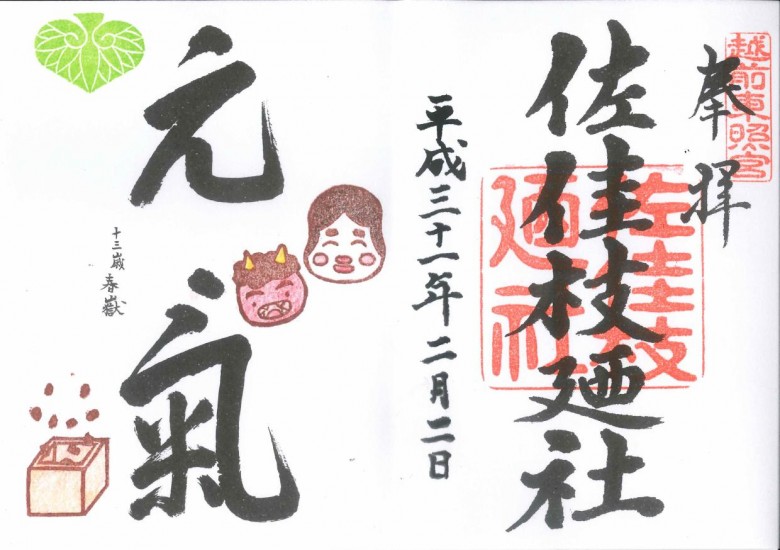 越前東照宮
奉拝
佐佳枝廼社
佐佳枝
廼社
平成三十一年二月二日
元氣
十三歳 春嶽